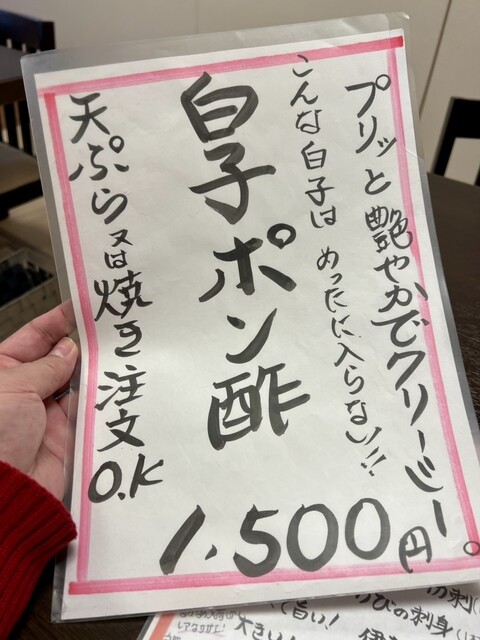 プリッと艶やかでクリーミー。
こんな白子はめったに入らない!!
白子ポン酢
1.500円
天ぷら又は焼き注文O.K